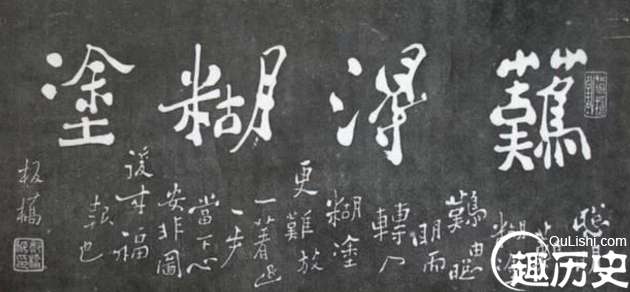 難得糊塗
聰明
難
糊
難由聰
明而
轉入
糊塗
更難放
一著退
一步
當下心
安非圖
後來福
報也
板橋
QuLishi.com
趣历史